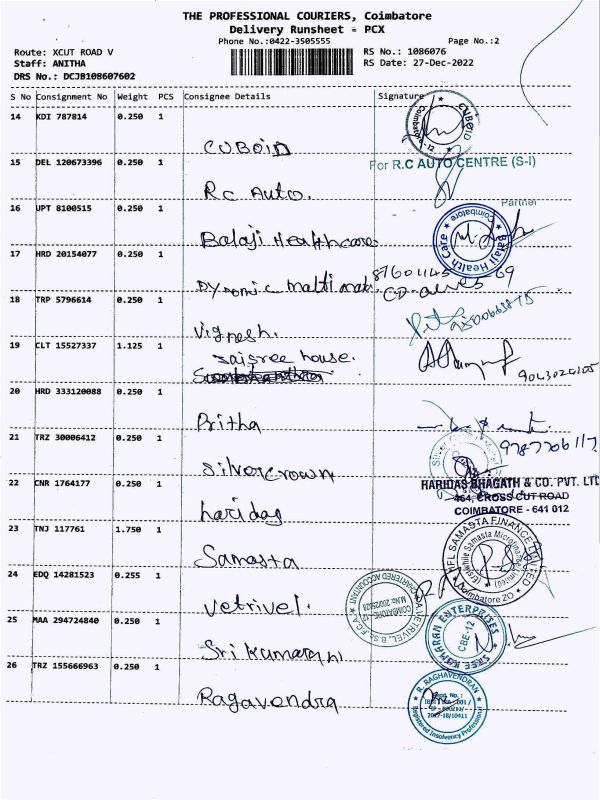 THE PROFESSIONAL COURIERS, Coimbatore
Delivery Runsheet - PCX
Phone No.:0422-3505555 Page No.:2
Route: XCUT ROAD V RS No.: 1086076
Staff: ANITHA RS Date: 27-Dec-2022
DRS No.: DCJB108607602
S No Consignment No Weight PCS Consignee Details Signature
14 KDI 787814 0.250 1
CUBOID
CUBOID
15 DEL 120673396 0.250 1
For R.C AUTO CENTRE (S-I)
Rc Auto.
Partner
16 UPT 8100515 0.250 1
Balaji Healthcare
Balaji Health Care
Coimbatore
17 HRD 20154077 0.250 1
18 TRP 5796614 0.250 1
Vignesh.
19 CLT 15527337 1.125 1
saisree house.
20 HRD 333120088 0.250 1
Pritha
21 TRZ 30006412 0.250 1
silvercrown
22 CNR 1764177 0.250 1
HARIDAS BHAGATH & CO. PVT. LTD
464, CROSS CUT ROAD
COIMBATORE - 641 012
haridas
23 TNJ 117761 1.750 1
Samasta
24 EDQ 14281523 0.255 1
vetrivel.
25 MAA 294724840 0.250 1
SREE KUMARAN ENTERPRISES
CBE-12
26 TRZ 155666963 0.250 1
Ragavendra
R. RAGHAVENDRAN
Registered Insolvency Professional